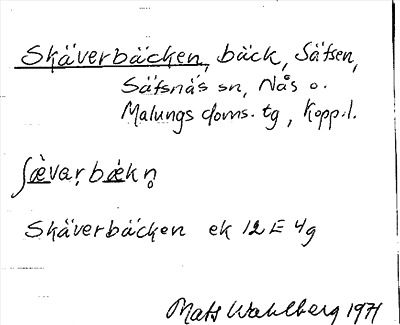 Skäverbäcken, bäck, Säfsen,
Säfsnäs sn, Nås o.
Malungs doms. tg, Kopp.l.
ʃæ̀vaṛbæ̀kn̥
Skäverbäcken ek 12 E 4g
Mats Wahlberg 1971